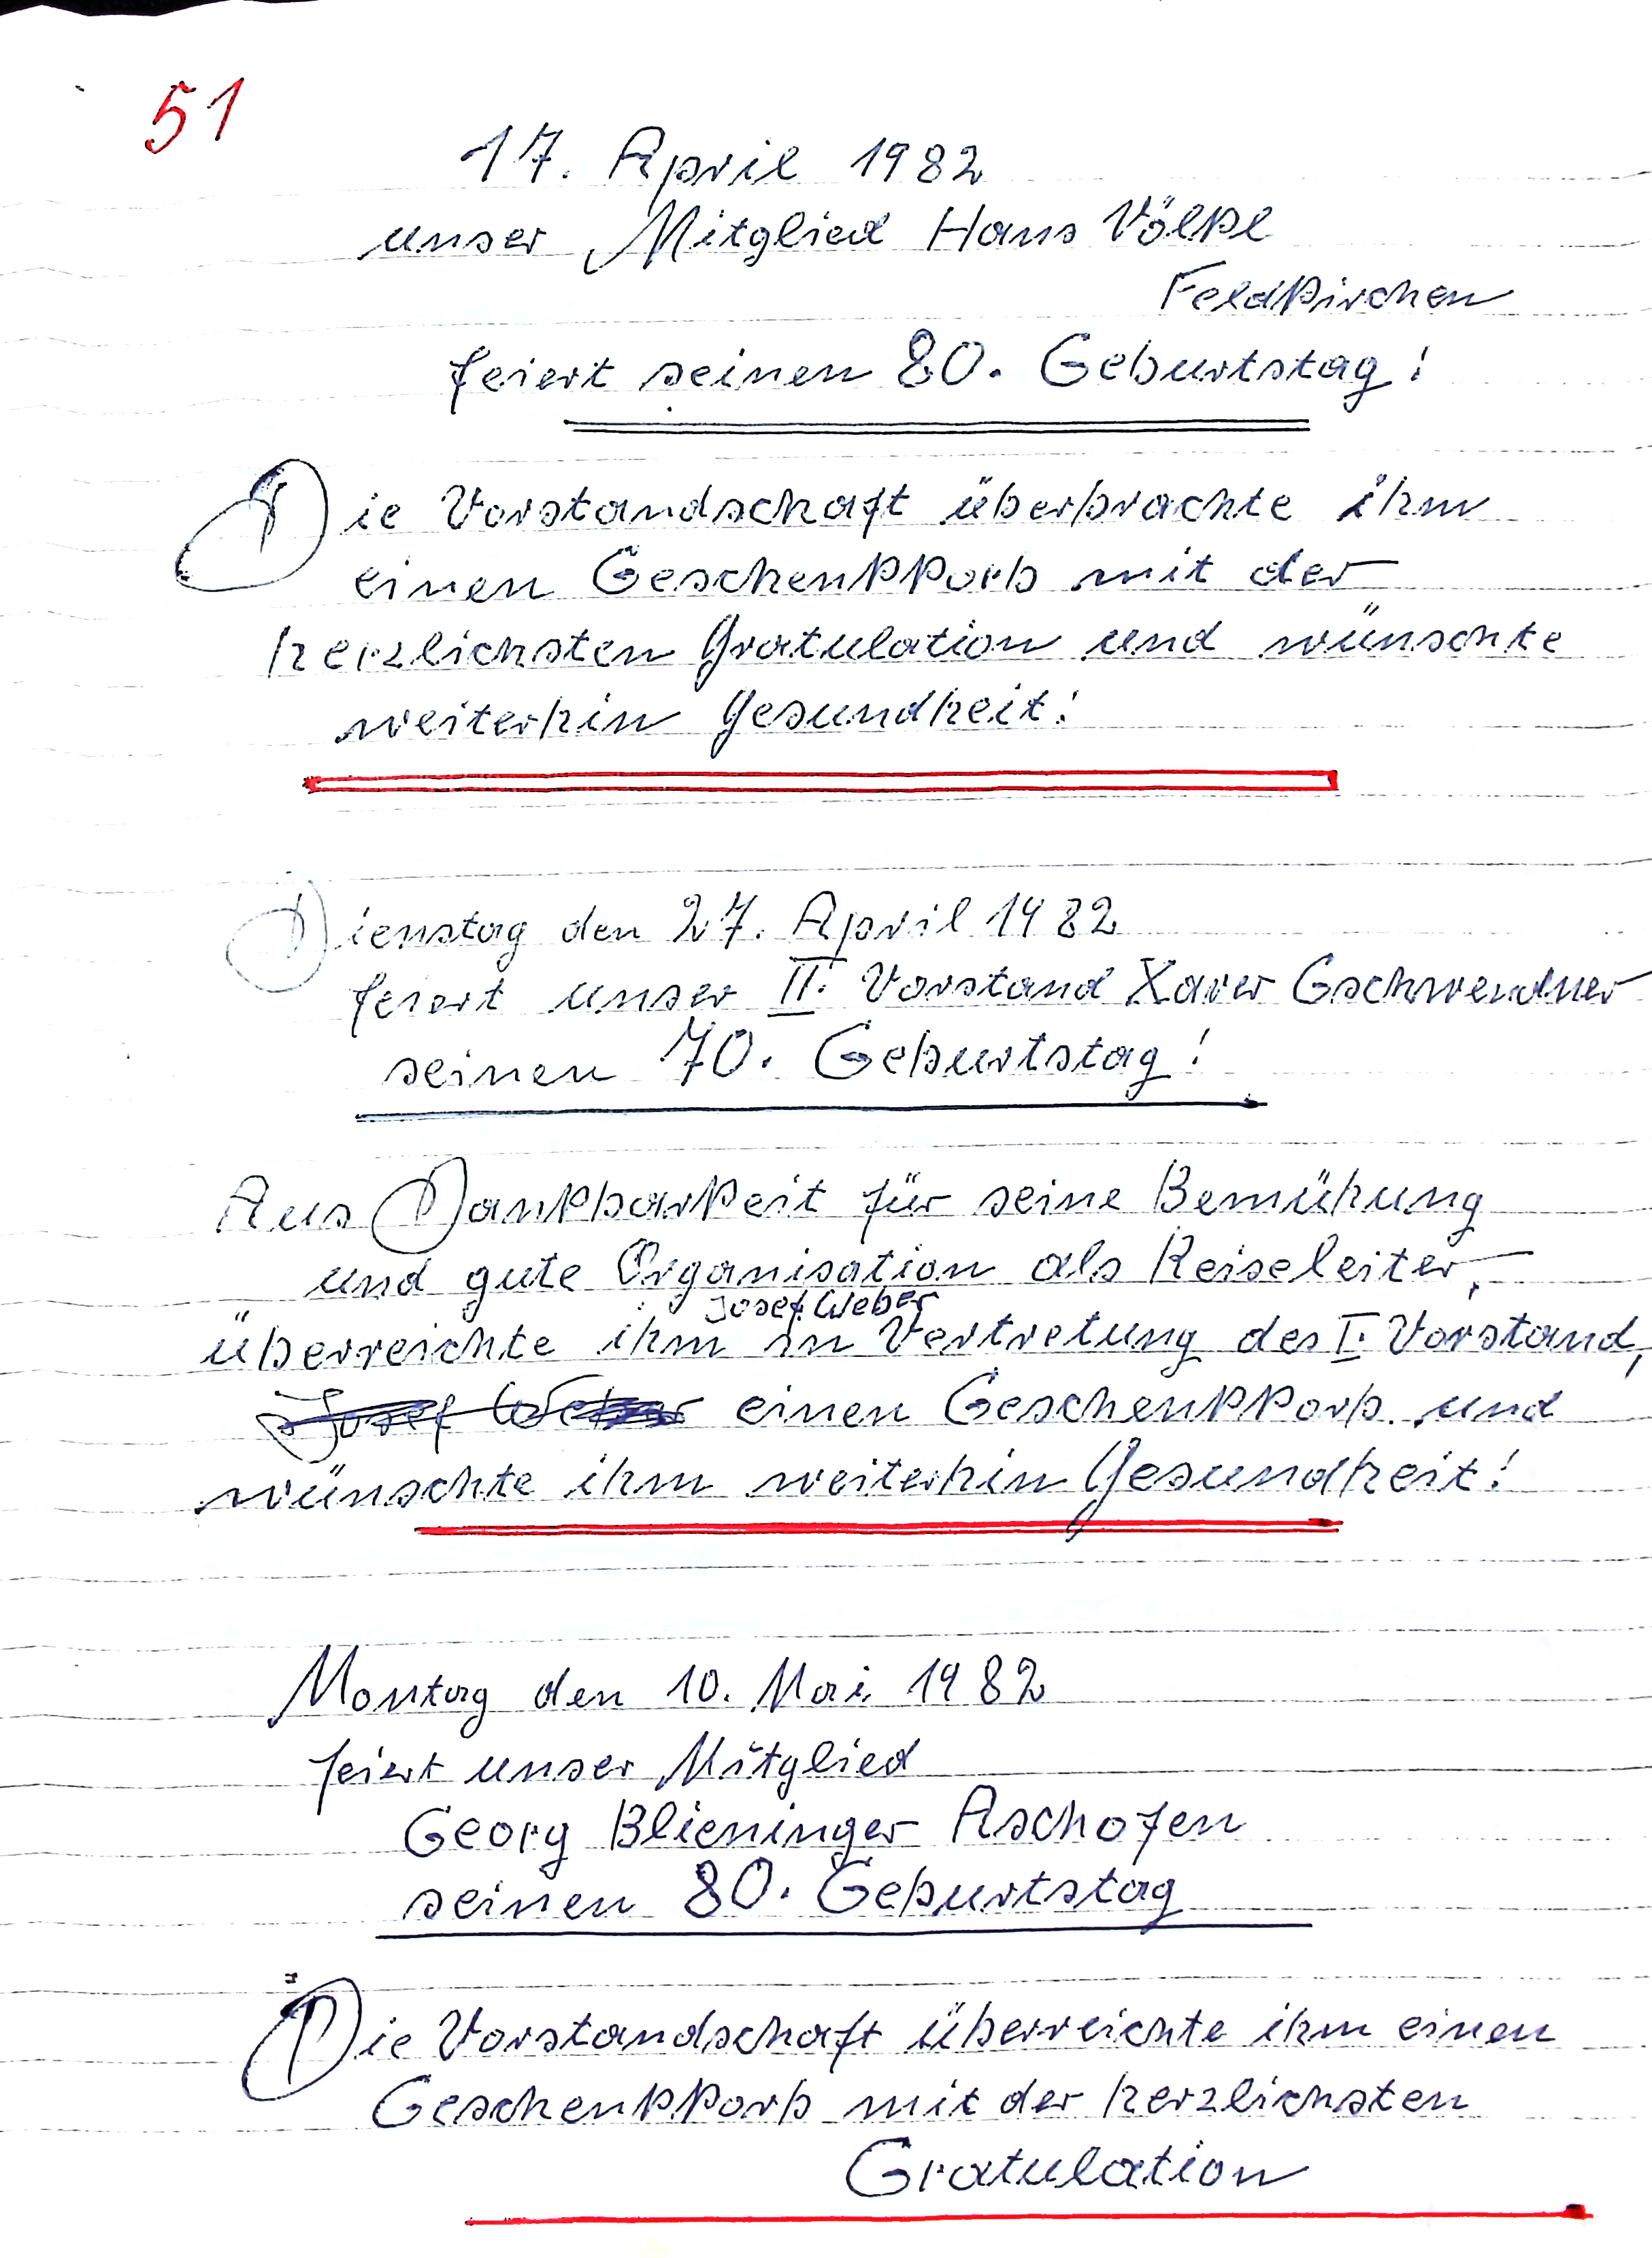 51
17. April 1982
unser Mitglied Hans Völkl
Feldkirchen
feiert seinen 80. Geburtstag!
Die Vorstandschaft überbrachte ihm
einen Geschenkkorb mit der
herzlichsten Gratulation und wünschte
weiterhin Gesundheit!
Dienstag den 27. April 1982
feiert unser II. Vorstand Xaver Gschwendner
seinen 70. Geburtstag!
Aus Dankbarkeit für seine Bemühung
und gute Organisation als Reiseleiter,
Josef Weber
überreichte ihm in Vertretung des I. Vorstand,
Josef Weber einen Geschenkkorb und
wünschte ihm weiterhin Gesundheit!
Montag den 10. Mai 1982
feiert unser Mitglied
Georg Blieninger Aschofen
seinen 80. Geburtstag
Die Vorstandschaft überreichte ihm einen
Geschenkkorb mit der herzlichsten
Gratulation